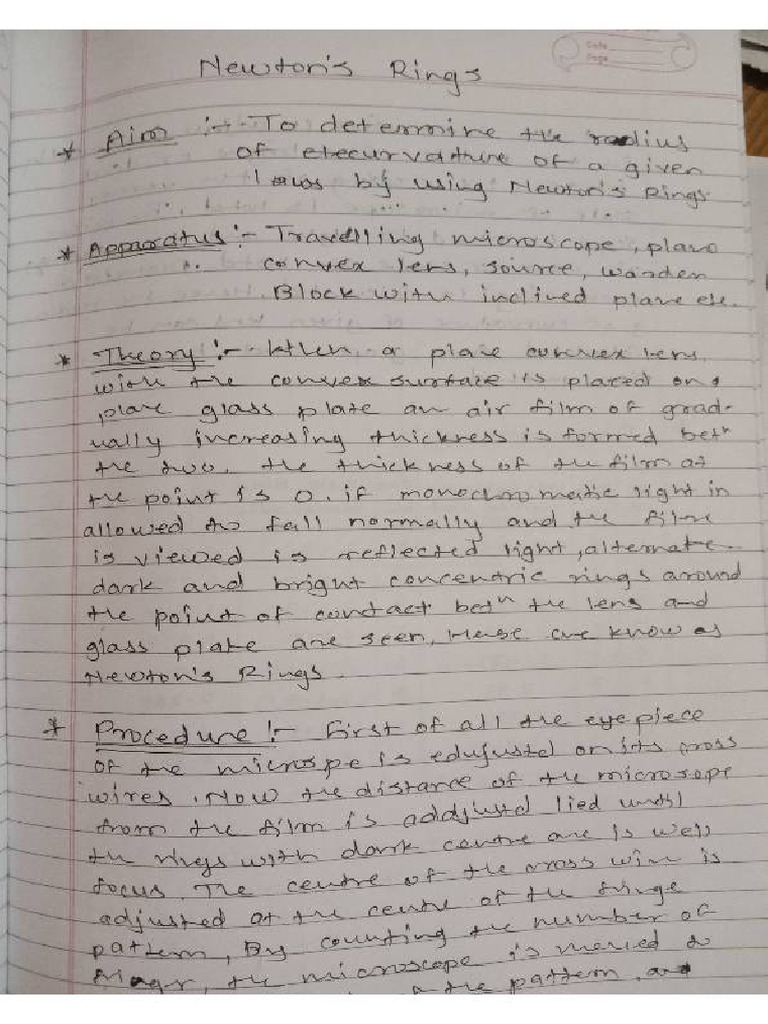 Date
Page
Newton's Rings
* Aim :- To determine the radius
of curvature of a given
by using Newton's Rings.
* Apparatus :- Travelling microscope, plano
convex lens, source, wooden
Block with inclined plane etc.
* Theory :- When a plane convex lens
with the convex surface is placed on a
plane glass plate an air film of grad-
ually increasing thickness is formed betn
the two. the thickness of the film at
the point is 0. if monochromatic light in
allowed to fall normally and the film
is viewed is reflected light, alternate
dark and bright concentric rings around
the point of contact betn the lens and
glass plate are seen, these are know as
Newton's Rings.
* Procedure :- First of all the eyepiece
of the micrспpe is edujusted on its cross
wires. Now the distance of the microsope
from the film is addjustd lied until
the rings with dark centre are is well
focus. The centre of the cross wire is
adjusted at the centre of the fringe
pattern, By counting the number of
the microscope is moved to
the pattern, and